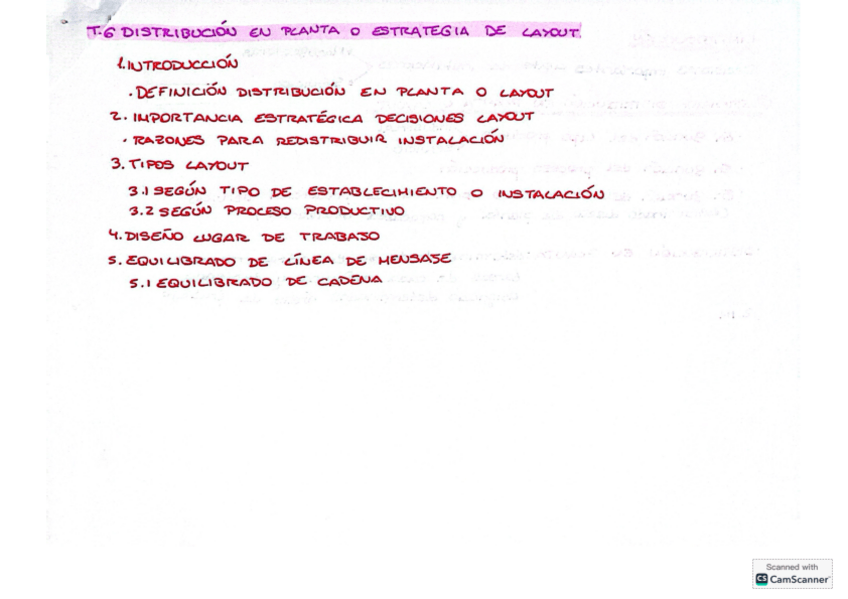 T.6 DISTRIBUCIÓN EN PLANTA O ESTRATEGIA DE LAYOUT
1. INTRODUCCIÓN
· DEFINICIÓN DISTRIBUCIÓN EN PLANTA O LAYOUT
2. IMPORTANCIA ESTRATÉGICA DECISIONES LAYOUT
· RAZONES PARA REDISTRIBUIR INSTALACIÓN
3. TIPOS LAYOUT
3.1 SEGÚN TIPO DE ESTABLECIMIENTO O INSTALACIÓN
3.2 SEGÚN PROCESO PRODUCTIVO
4. DISEÑO LUGAR DE TRABAJO
5. EQUILIBRADO DE LÍNEA DE MENSASE
5.1 EQUILIBRADO DE CADENA
Scanned with
CS CamScanner